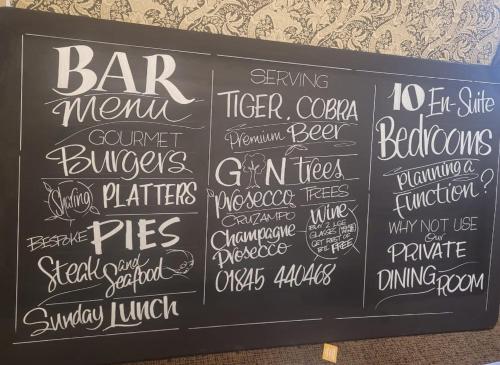 BAR
Menu
GOURMET
Burgers
Sharing PLATTERS
BESPOKE PIES
Steak and
Seafood
Sunday Lunch
SERVING
TIGER, COBRA
Premium Beer
GIN trees
Prosecco TREES
CRUZAMPO
Champagne
Prosecco
Wine
BUY 2 LGE
GLASSES
GET REST OF
BTL FREE
01845 440468
10 En-Suite
Bedrooms
planning a
function?
WHY NOT USE
Our
PRIVATE
DINING ROOM